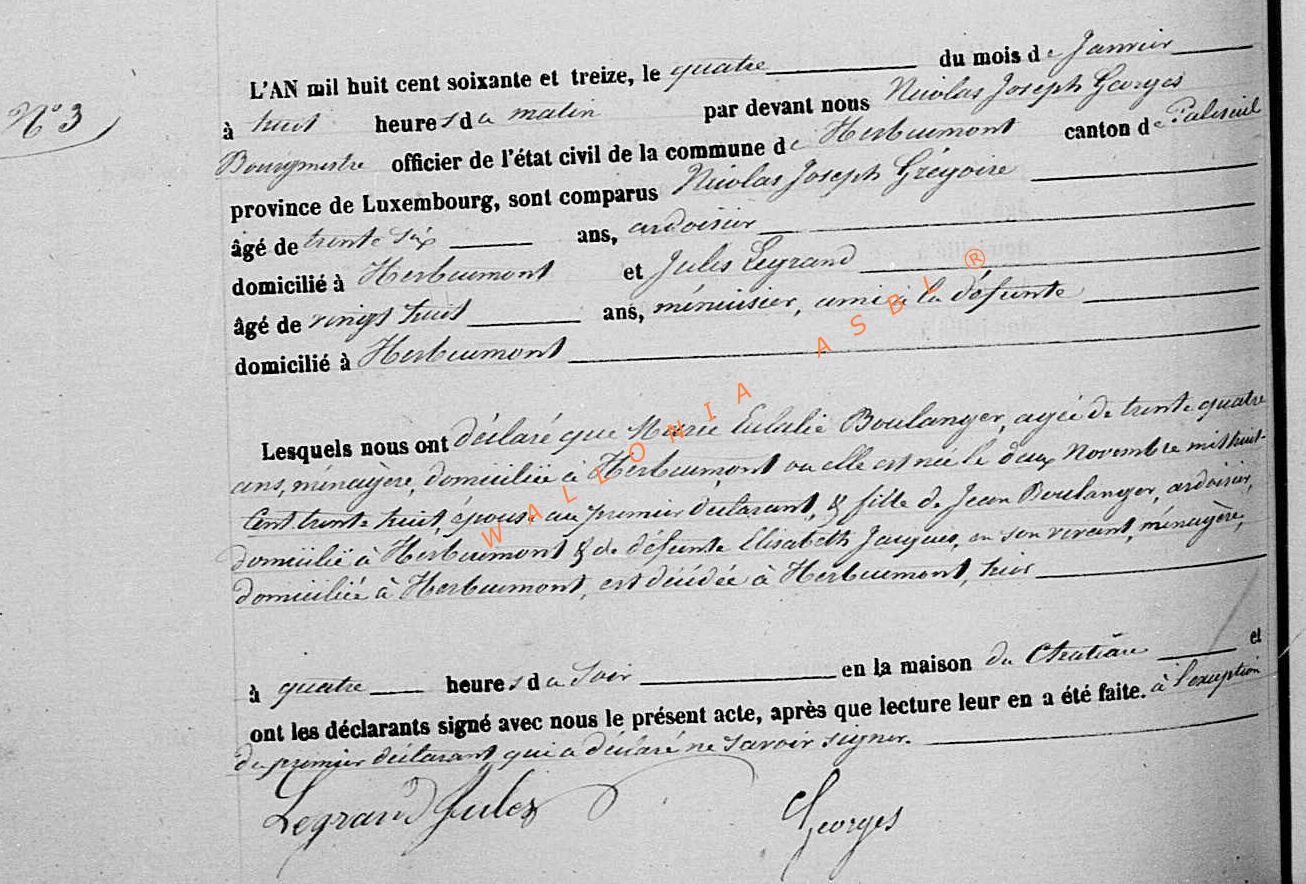 N° 3
L'AN mil huit cent soixante et treize, le quatre du mois de Janvier
à huit heures du matin par devant nous Nicolas Joseph Georges
Bourgmestre officier de l'état civil de la commune de Herbeumont canton de Paliseul
province de Luxembourg, sont comparus Nicolas Joseph Grégoire
âgé de trente six ans, ardoisier
domicilié à Herbeumont et Jules Legrand
âgé de vingt huit ans, ménuisier, ami à la défunte
domicilié à Herbeumont
Lesquels nous ont déclaré que Marie Eulalie Boulanger, agée de trente quatre
ans, ménagère, domiciliée à Herbeumont ou elle est née le deux Novembre mil huit-
Cent trente huit, épouse au premier déclarant, & fille de Jean Boulanger, ardoisier,
domicilié à Herbeumont & de défunte Elisabeth Jacques, en son vivant, ménagère,
domiciliée à Herbeumont, est décédée à Herbeumont, hier
à quatre heures du soir en la maison du Chatiau et
ont les déclarants signé avec nous le présent acte, après que lecture leur en a été faite. à l'exception
du premier déclarant qui a déclaré ne savoir signer.
Legrand Jules Georges
WALLONIA ASBL ®